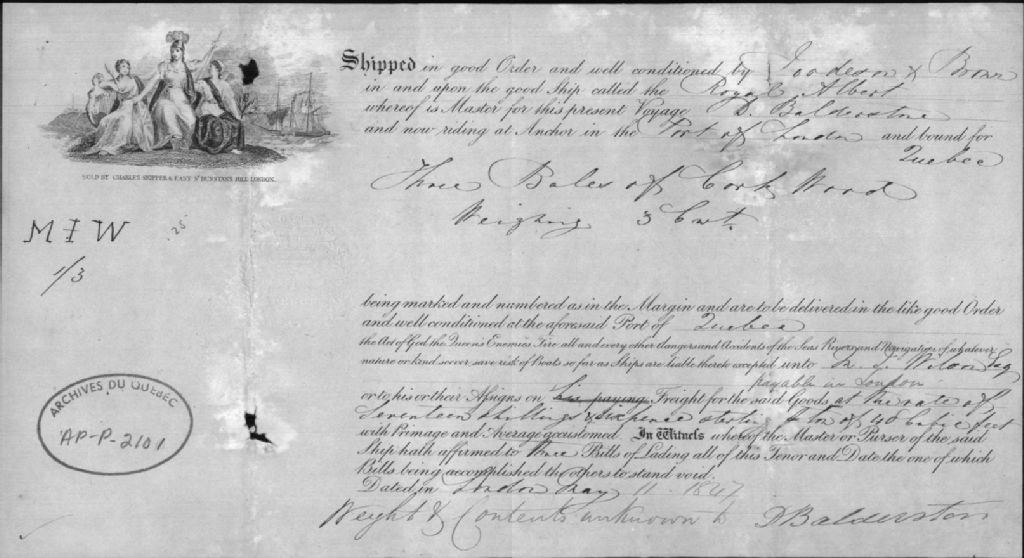 Shipped in good Order and well conditioned by & Brown
in and upon the good Ship called the Royal Albert
whereof is Master for this present Voyage D. Balderstone
and now riding at Anchor in the Port of London and bound for
Quebec
Three Bales of Cork Wood
Weighing 3 Cwt.
SOLD BY CHARLES SKIPPER & EAST St DUNSTAN'S HILL LONDON.
M I W
1/3
being marked and numbered as in the Margin and are to be delivered in the like good Order
and well conditioned at the aforesaid Port of Quebec
the Act of God the Queen's Enemies Fire all and every other dangers and Accidents of the Seas Rivers and Navigation of whatever
nature or kind soever save risk of Boats so far as Ships are liable thereto excepted unto Wilson Esq
payable in London
or to his or their Assigns on paying Freight for the said Goods at the rate of
Seventeen shillings & sixpence of 40 Cubic feet
with Primage and Average accustomed. In Witness whereof the Master or Purser of the said
Ship hath affirmed to three Bills of Lading all of this Tenor and Date the one of which
Bills being accomplished the others to stand void.
Dated in London May 11 1847
Weight & Contents unknown to D Balderston
ARCHIVES DU QUEBEC
AP-P-2101